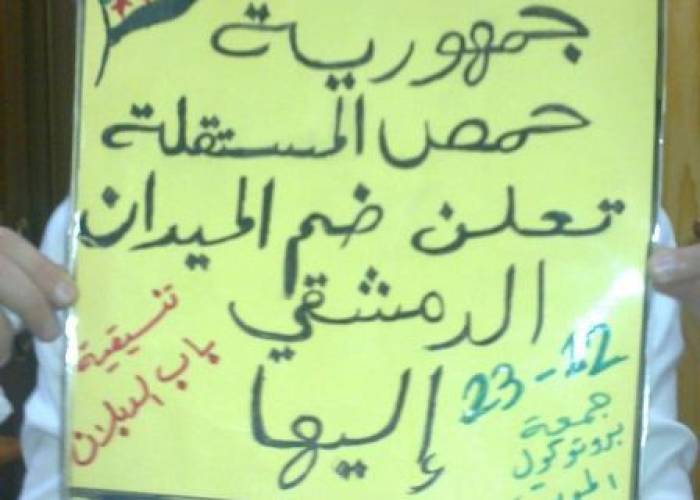 جمهورية
حمص المستقلة
تعلن ضم الميدان
الدمشقي
إليها
تنسيقية
باب السباع
23-12
جمعة
بروتوكول